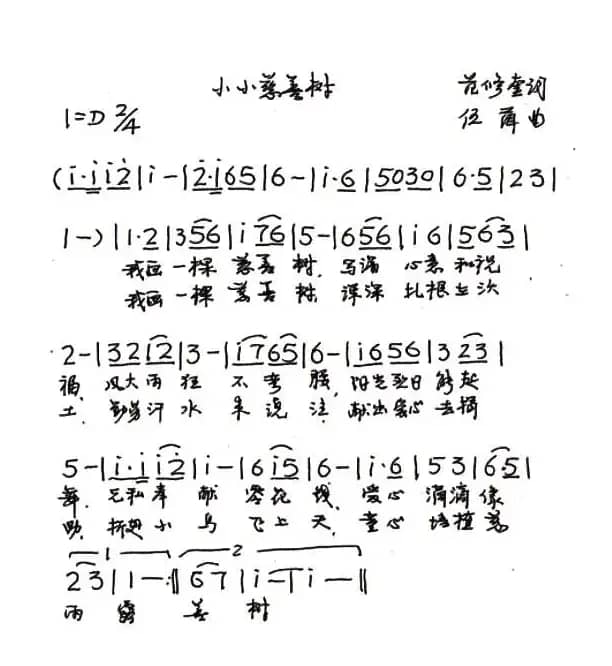 小小慈善树
范修奎词
1=D 2/4
伍 曲
(i·i i2̇|i-|2̇·i65|6-|i·6|5030|6·5|23|
1-)|1·2|356|i76|5-|656|i6|563|
我画一棵 慈善 树, 写满 心意 和祝
我画一棵 慈善 树 深深 扎根在沃
2-|32i2̇|3-|i765|6-|i656|3 23|
福, 风大雨 狂 不弯 腰, 阳光烈日 能起
土, 勤劳汗 水 来浇 注, 献出爱心 去捐
5-|i·i i2̇|i-|6i5|6-|i·6|53|6·5|
舞, 无私奉 献 零花 钱, 爱心 滴滴 像
助, 折翅小 鸟 飞上 天, 童心 培植 慈
1 2
23|1-:‖67|i-|i-‖
雨 露 善 树